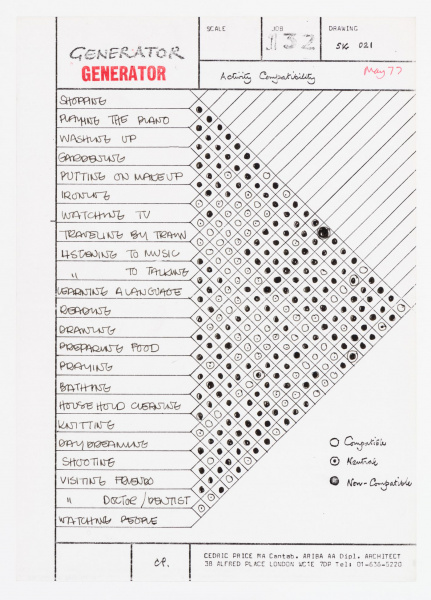 SCALE
JOB
DRAWING
GENERATOR
132
SK 021
GENERATOR
Activity Compatibility
May 77
SHOPPING
PLAYING THE PIANO
WASHING UP
GARDENING
PUTTING ON MAKEUP
IRONING
WATCHING TV
TRAVELING BY TRAIN
LISTENING TO MUSIC
" TO TALKING
LEARNING A LANGUAGE
READING
DRAWING
PREPARING FOOD
PRAYING
BATHING
HOUSEHOLD CLEANING
KNITTING
DAYDREAMING
SHOOTING
VISITING FRIENDS
" DOCTOR/DENTIST
WATCHING PEOPLE
Compatible
Neutral
Non-Compatible
CP.
CEDRIC PRICE MA Cantab. ARIBA AA Dipl. ARCHITECT
38 ALFRED PLACE LONDON WC1E 7DP Tel: 01-636-5220